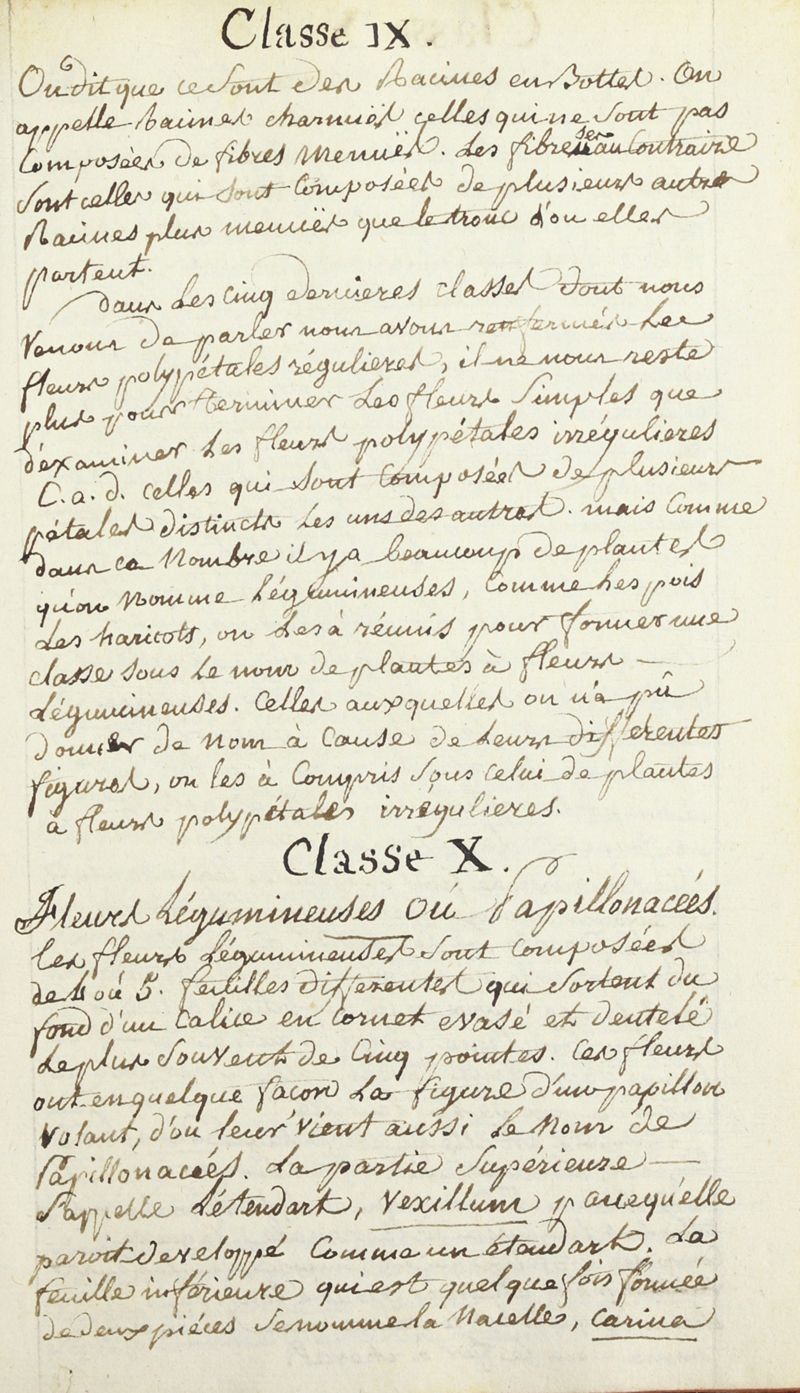 Classe IX.
On dit que ce sont des Racines en Bottes. On
appelle Racines charnuës celles qui ne sont pas
Composées de fibres Menuës. Les fibreuses au Contraire
sont celles qui sont Composées de plusieurs autres
Racines plus menuës que le tronc d'ou elles
partent.
Dans Les Cinq dernieres classes dont nous
Venons de parler nous avons renfermés Les
fleurs polypétales régulieres, il ne nous reste
plus pour terminer Les fleurs Simples que
d'éxaminer Les fleurs polypétales irrégulieres
C. a. d. celles qui sont Composées de plusieurs
pétales distincts Les uns des autres. mais Comme
dans ce Nombre il y a beaucoup de plantes
qu'on Nomme Légumineuses, Comme Les pois
Les haricots, on Les à réunis pour former une
classe sous Le nom de plantes à fleurs
Légumineuses. Celles auxquelles on n'a pû
donner de Nom à Cause de Leurs differentes
figures, on les à Compris sous celui de plantes
à fleurs polypétales irrégulieres.
Classe X.
Fleurs Légumineuses Oú Papillonacées.
Les fleurs Légumineuses sont Composées
de 4 oú 5. feuilles differentes qui sortent du
fond d'un Calice en Cornet evasé et dentelé
Le plus Souvent de Cinq pointes. Ces fleurs
ont en quelque façon La figure d'un papillon
Volant, d'ou leur vient aussi Le Nom de
Papillonacées. La partie Supérieure
s'appelle L'étendart, Vexillum parcequ'elle
paroit developpé Comme un étendart. La
feuille inférieure qui est quelque fois formée
de deux piéces se nomme la Nacelle, Carina